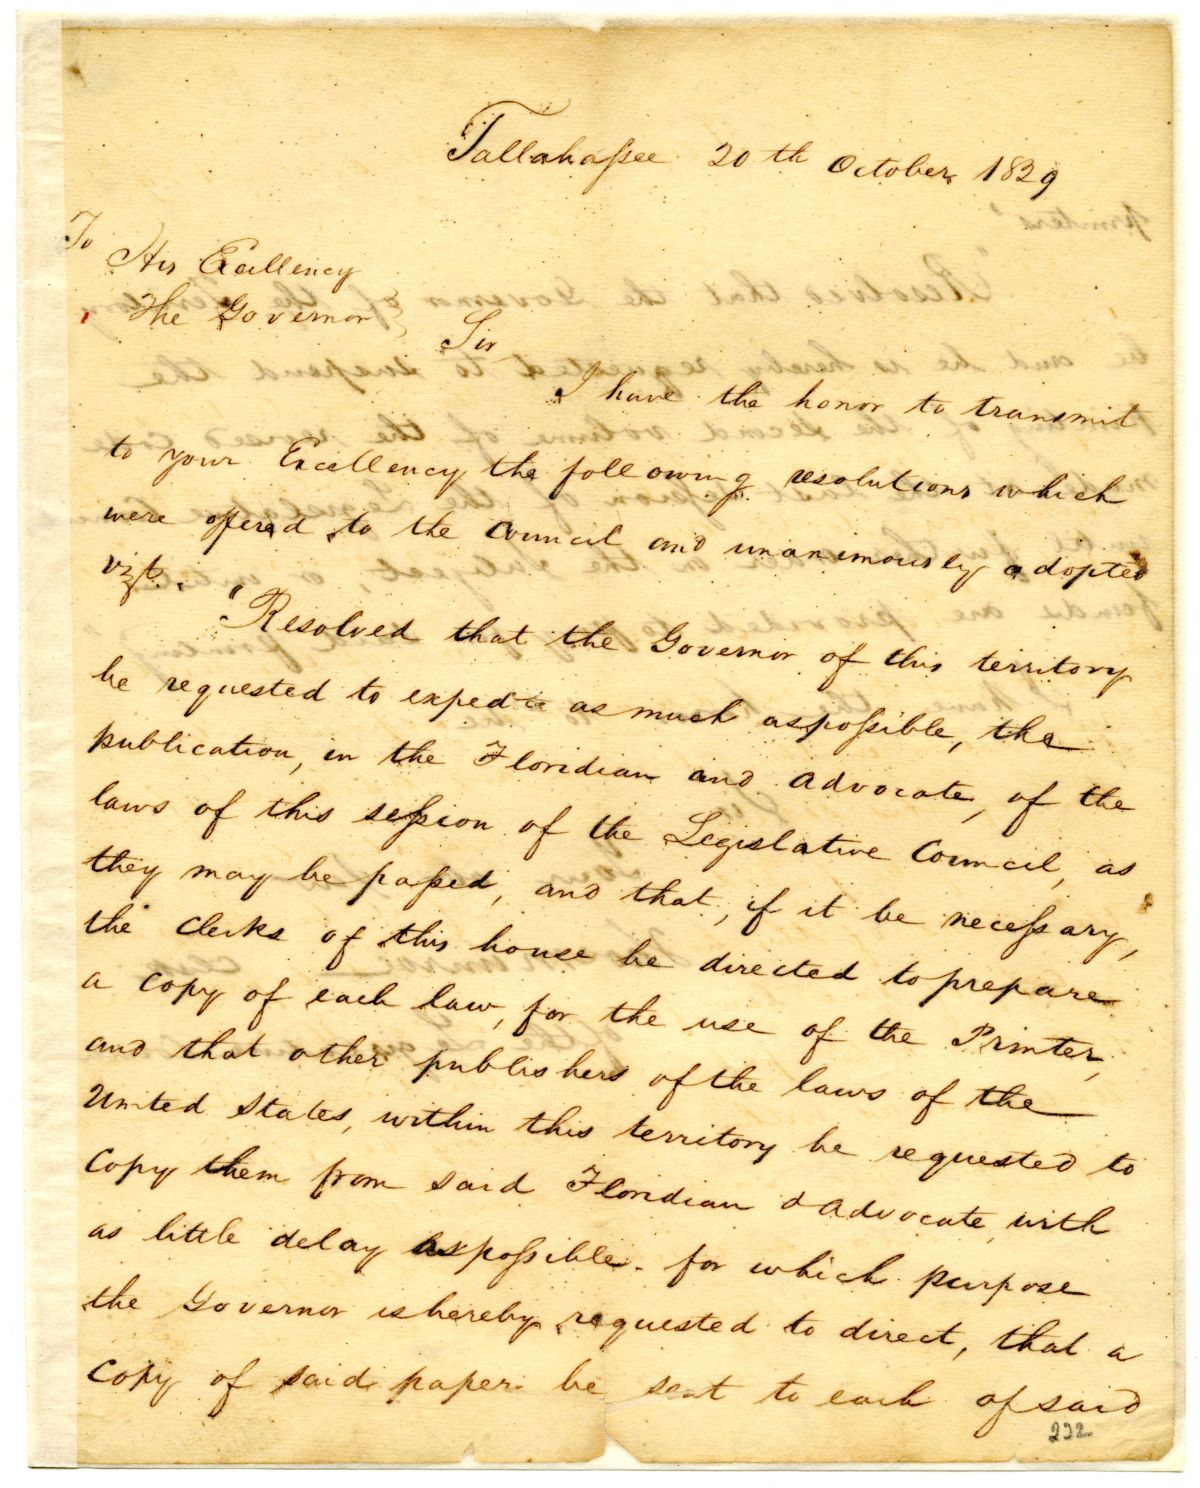 Tallahassee 20th October 1829
To
His Excellency
The Governor
Sir
I have the honor to transmit
to your Excellency the following resolutions which
were offered to the Council and unanimously adopted
vizt.
"Resolved that the Governor of this territory
be requested to expedite as much as possible, the
publication, in the Floridian and Advocate, of the
laws of this session of the Legislative Council, as
they may be passed, and that, if it be necessary,
the Clerks of this house be directed to prepare
a copy of each law, for the use of the Printer,
and that other publishers of the laws of the
United States, within this territory be requested to
copy them from said Floridian & Advocate, with
as little delay as possible. for which purpose
the Governor is hereby requested to direct, that a
copy of said paper be sent to each of said
232